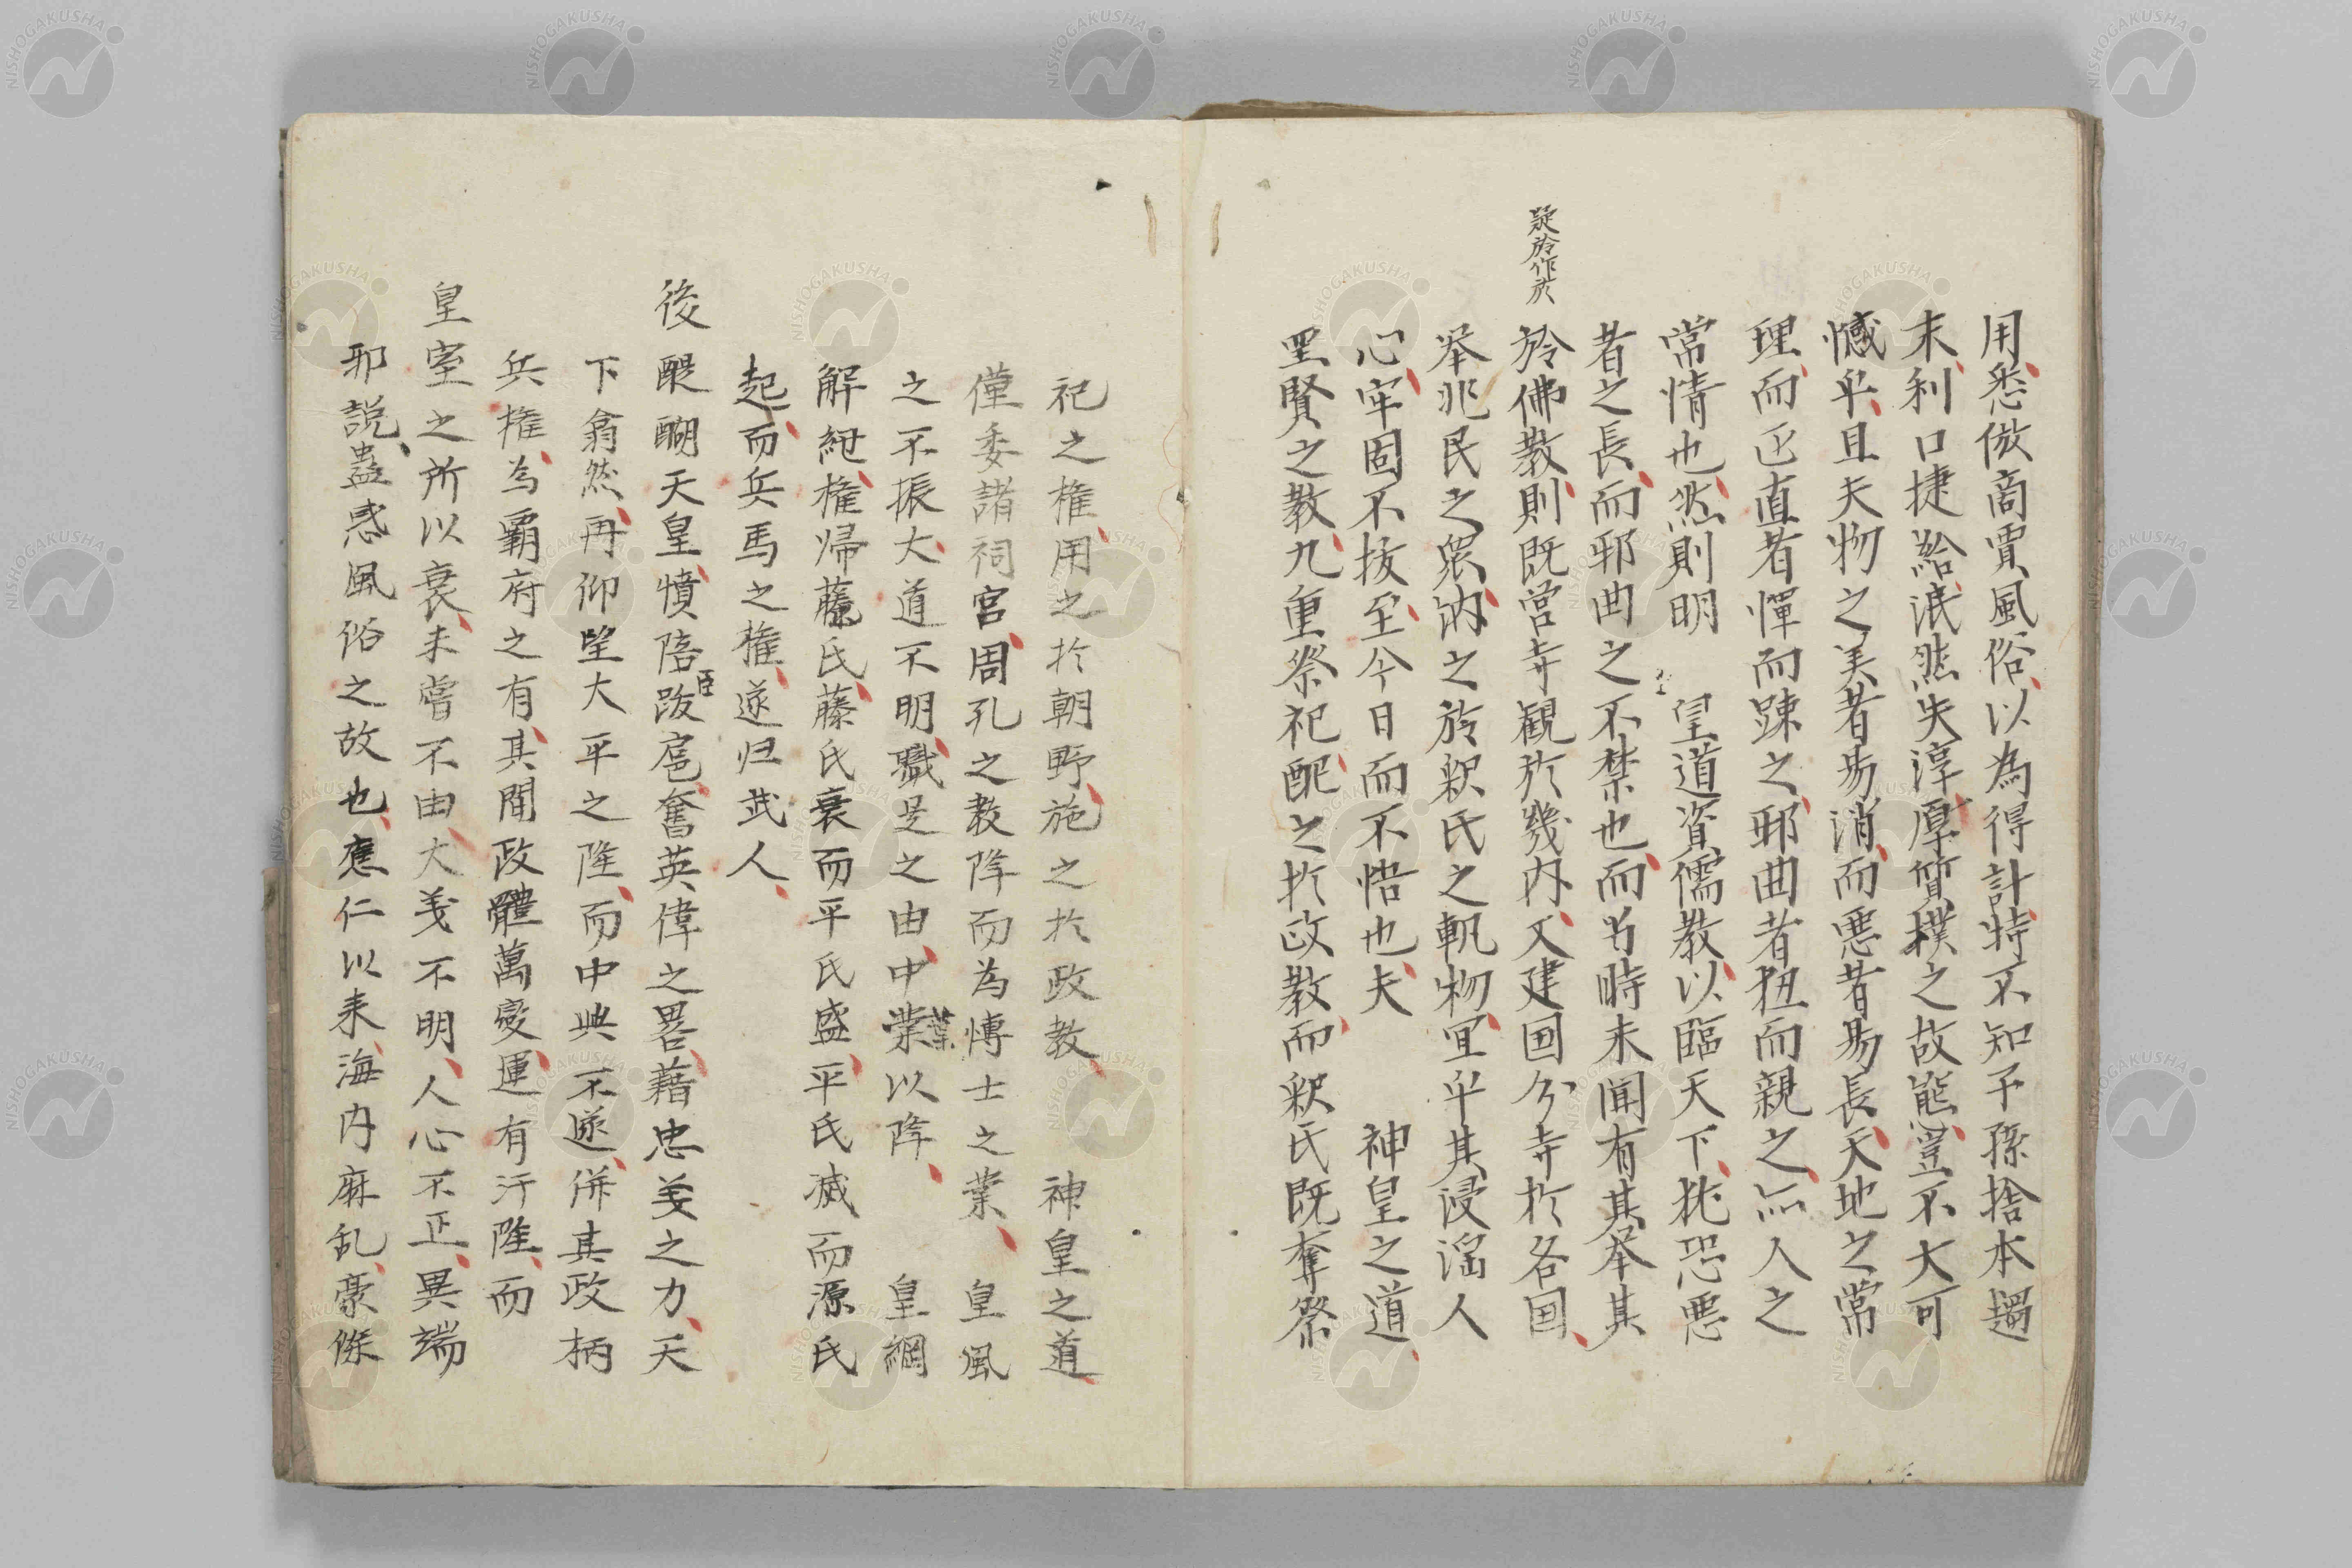 用悉倣商賈風俗以為得計特不知子孫捨本趨
末利口捷給泯然失淳厚質樸之故態豈不大可
憾乎且夫物之美者易消而悪者易長天地之常
理而正直者憚而踈之邪曲者狃而親之亦人之
常情也然則明 皇道資儒教以臨天下猶恐悪
者之長而邪曲之不禁也而當時未聞有其举其
疑於作於
於佛教則既営寺観於幾内又建国分寺於各国
举兆民之衆納之於釈氏之軌物宜乎其浸淫人
心牢固不抜至今日而不悟也夫 神皇之道
聖賢之教九重祭祀配之於政教而釈氏既奪祭
祀之権用之於朝野施之於政教 神皇之道
僅委諸祠宮周孔之教降而為博士之業 皇風
之不振大道不明職是之由中業葉以降 皇綱
解紐権帰藤氏藤氏衰而平氏盛平氏滅而源氏
起而兵馬之権遂归武人
後醍醐天皇憤陪臣跋扈奮英偉之畧藉忠義之力天
下翕然再仰望大平之隆而中興不遂併其政柄
兵権為覇府之有其間政體萬變運有汙隆而
皇室之所以衰未嘗不由大義不明人心不正異端
邪説蠱惑風俗之故也應仁以来海内麻乱豪傑
NISHOGAKUSHA